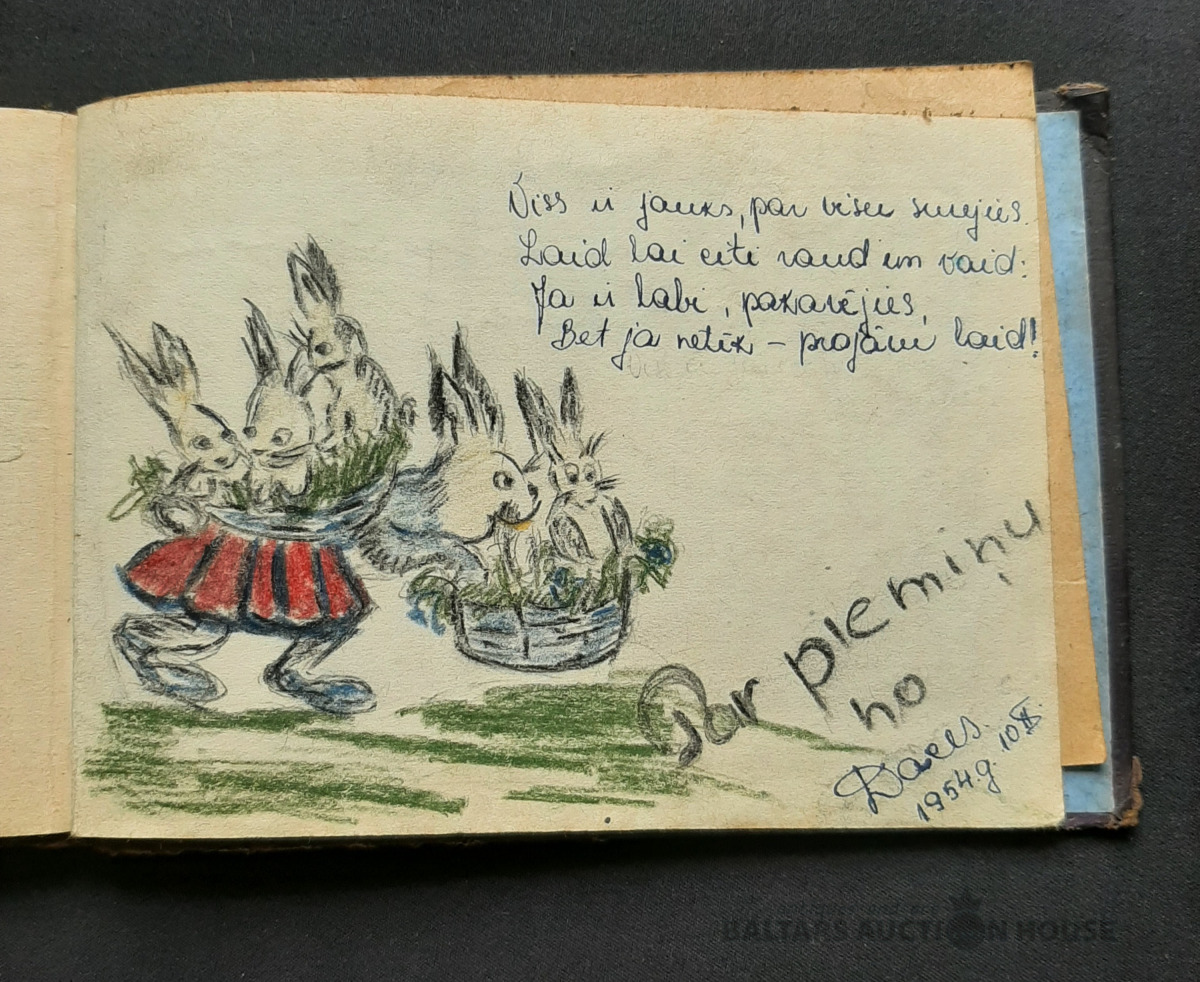 Viss ir jauks, par visu smejies.
Laid lai citi raud un vaid:
Ja ir labi, pakavējies,
Bet ja netīk – projām laid!
Par piemiņu
no
1954.g. 10.
BALTARS AUCTION HOUSE